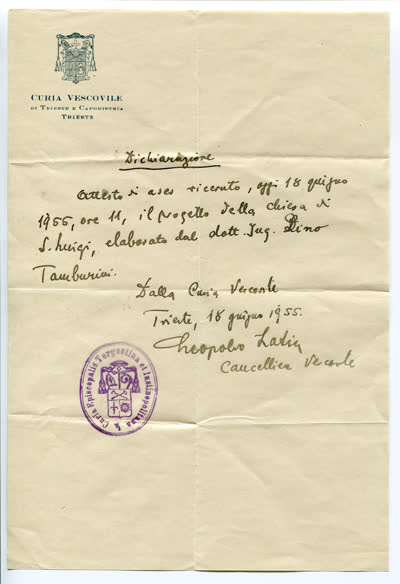 CURIA VESCOVILE
DI TRIESTE E CAPODISTRIA
TRIESTE
Dichiarazione
Attesto di aver ricevuto, oggi 18 giugno
1955, ore 11, il progetto della chiesa di
S. Luigi, elaborato dal dott. Ing. Dino
Tamburini.
Dalla Curia Vescovile
Trieste, 18 giugno 1955.
Cancelliere Vescovile
Curia Episcopalis Tergestina et Iustinopolitana